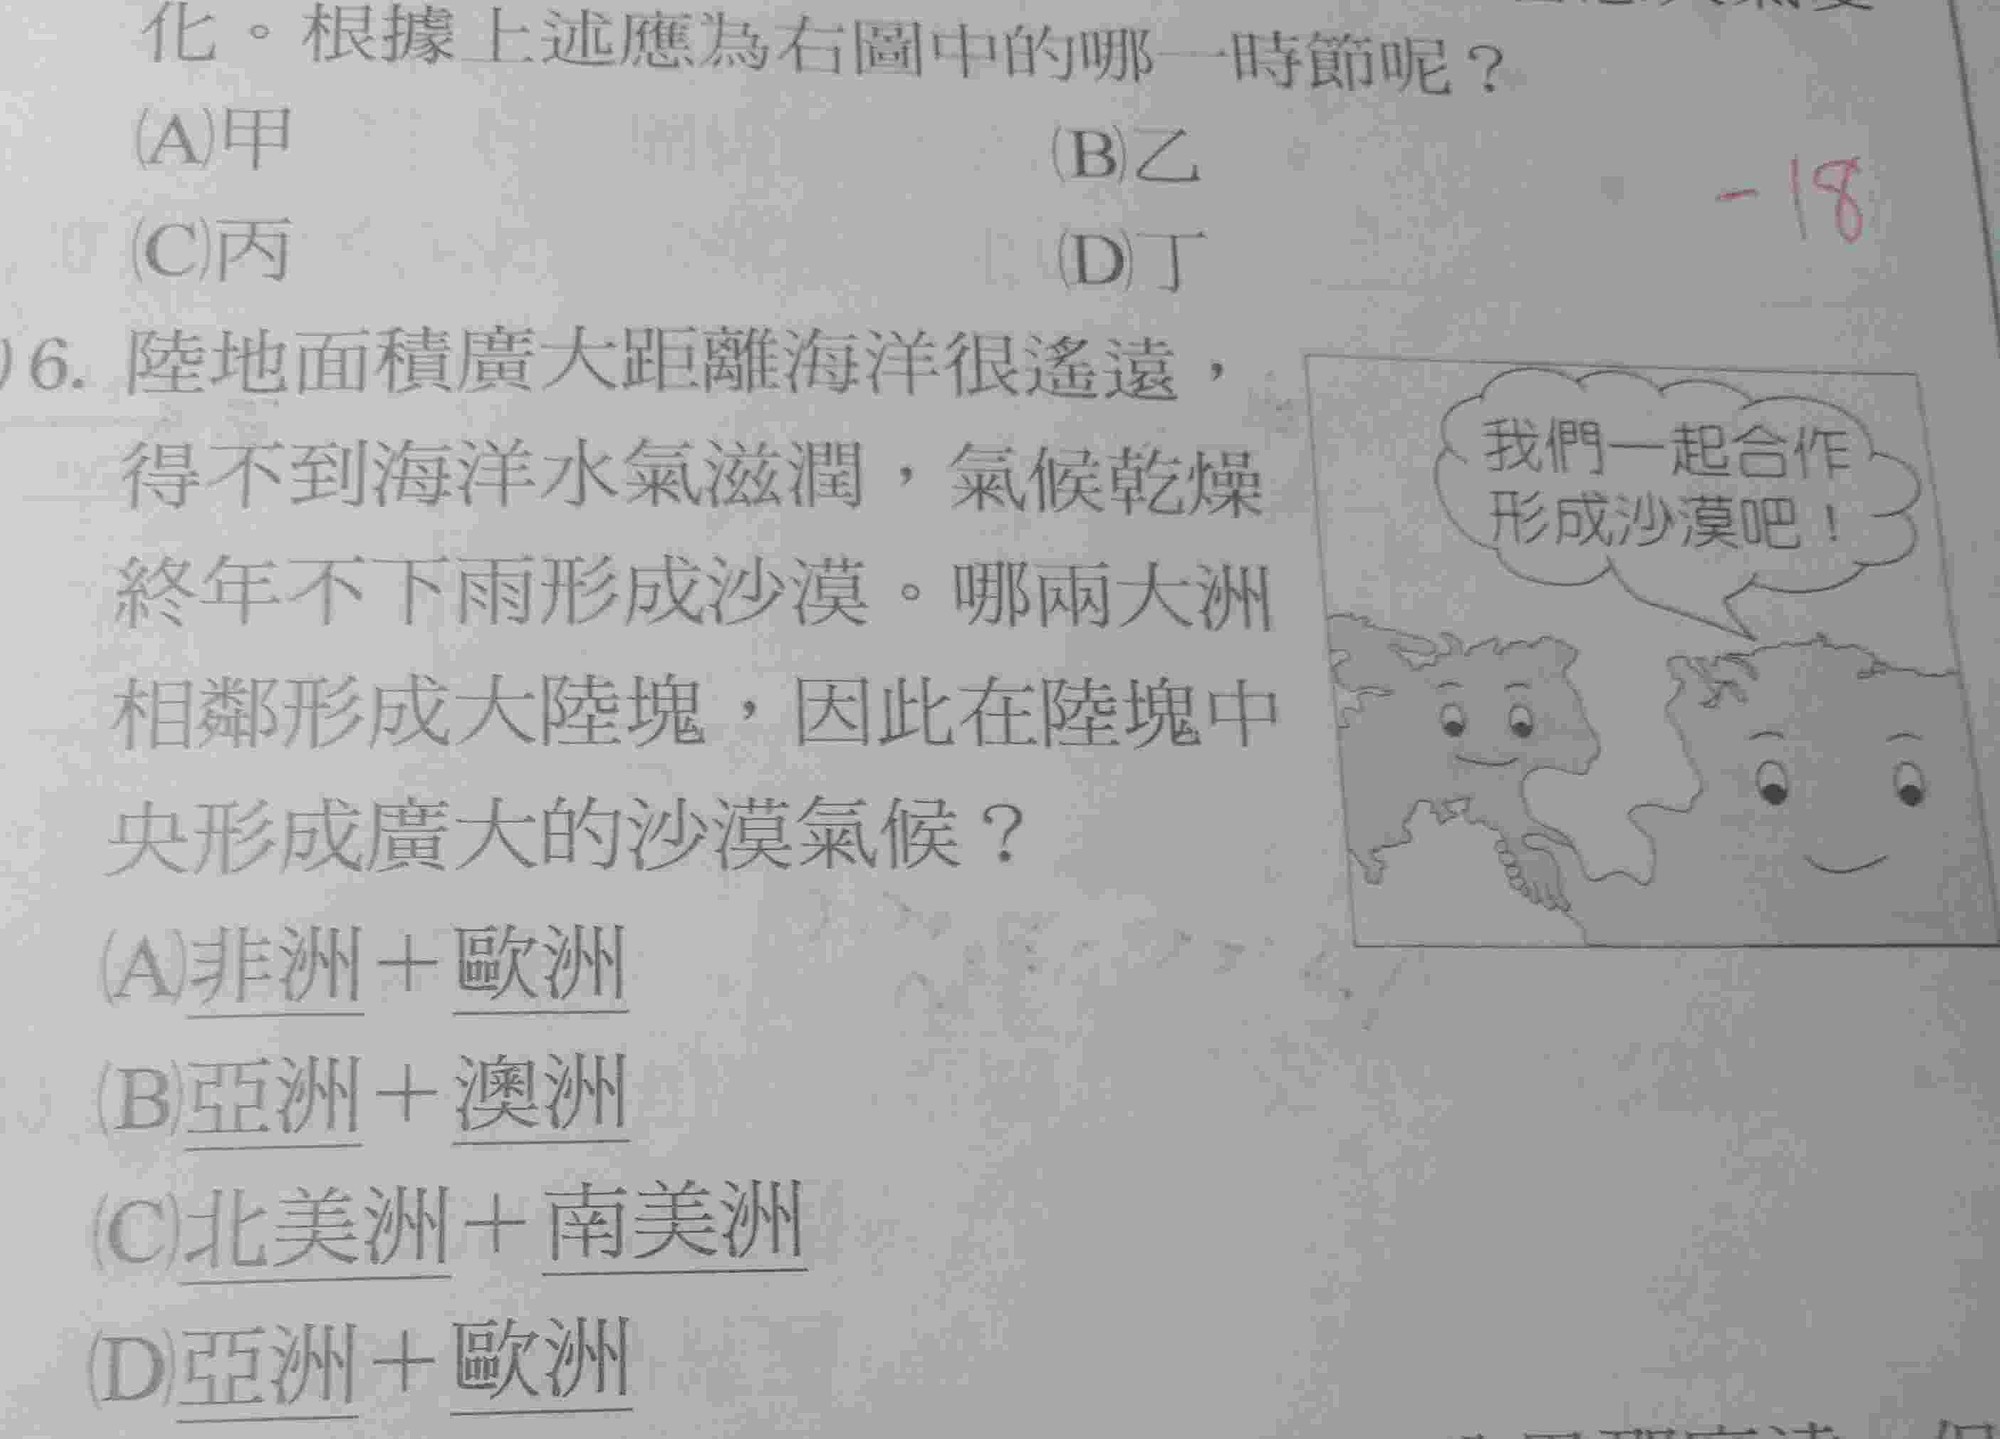 化。根據上述應為右圖中的哪一時節呢？
(A)甲
(B)乙
-18
(C)丙
(D)丁
)6. 陸地面積廣大距離海洋很遙遠，
得不到海洋水氣滋潤，氣候乾燥
終年不下雨形成沙漠。哪兩大洲
相鄰形成大陸塊，因此在陸塊中
央形成廣大的沙漠氣候？
我們一起合作
形成沙漠吧！
(A)非洲＋歐洲
(B)亞洲＋澳洲
(C)北美洲＋南美洲
(D)亞洲＋歐洲